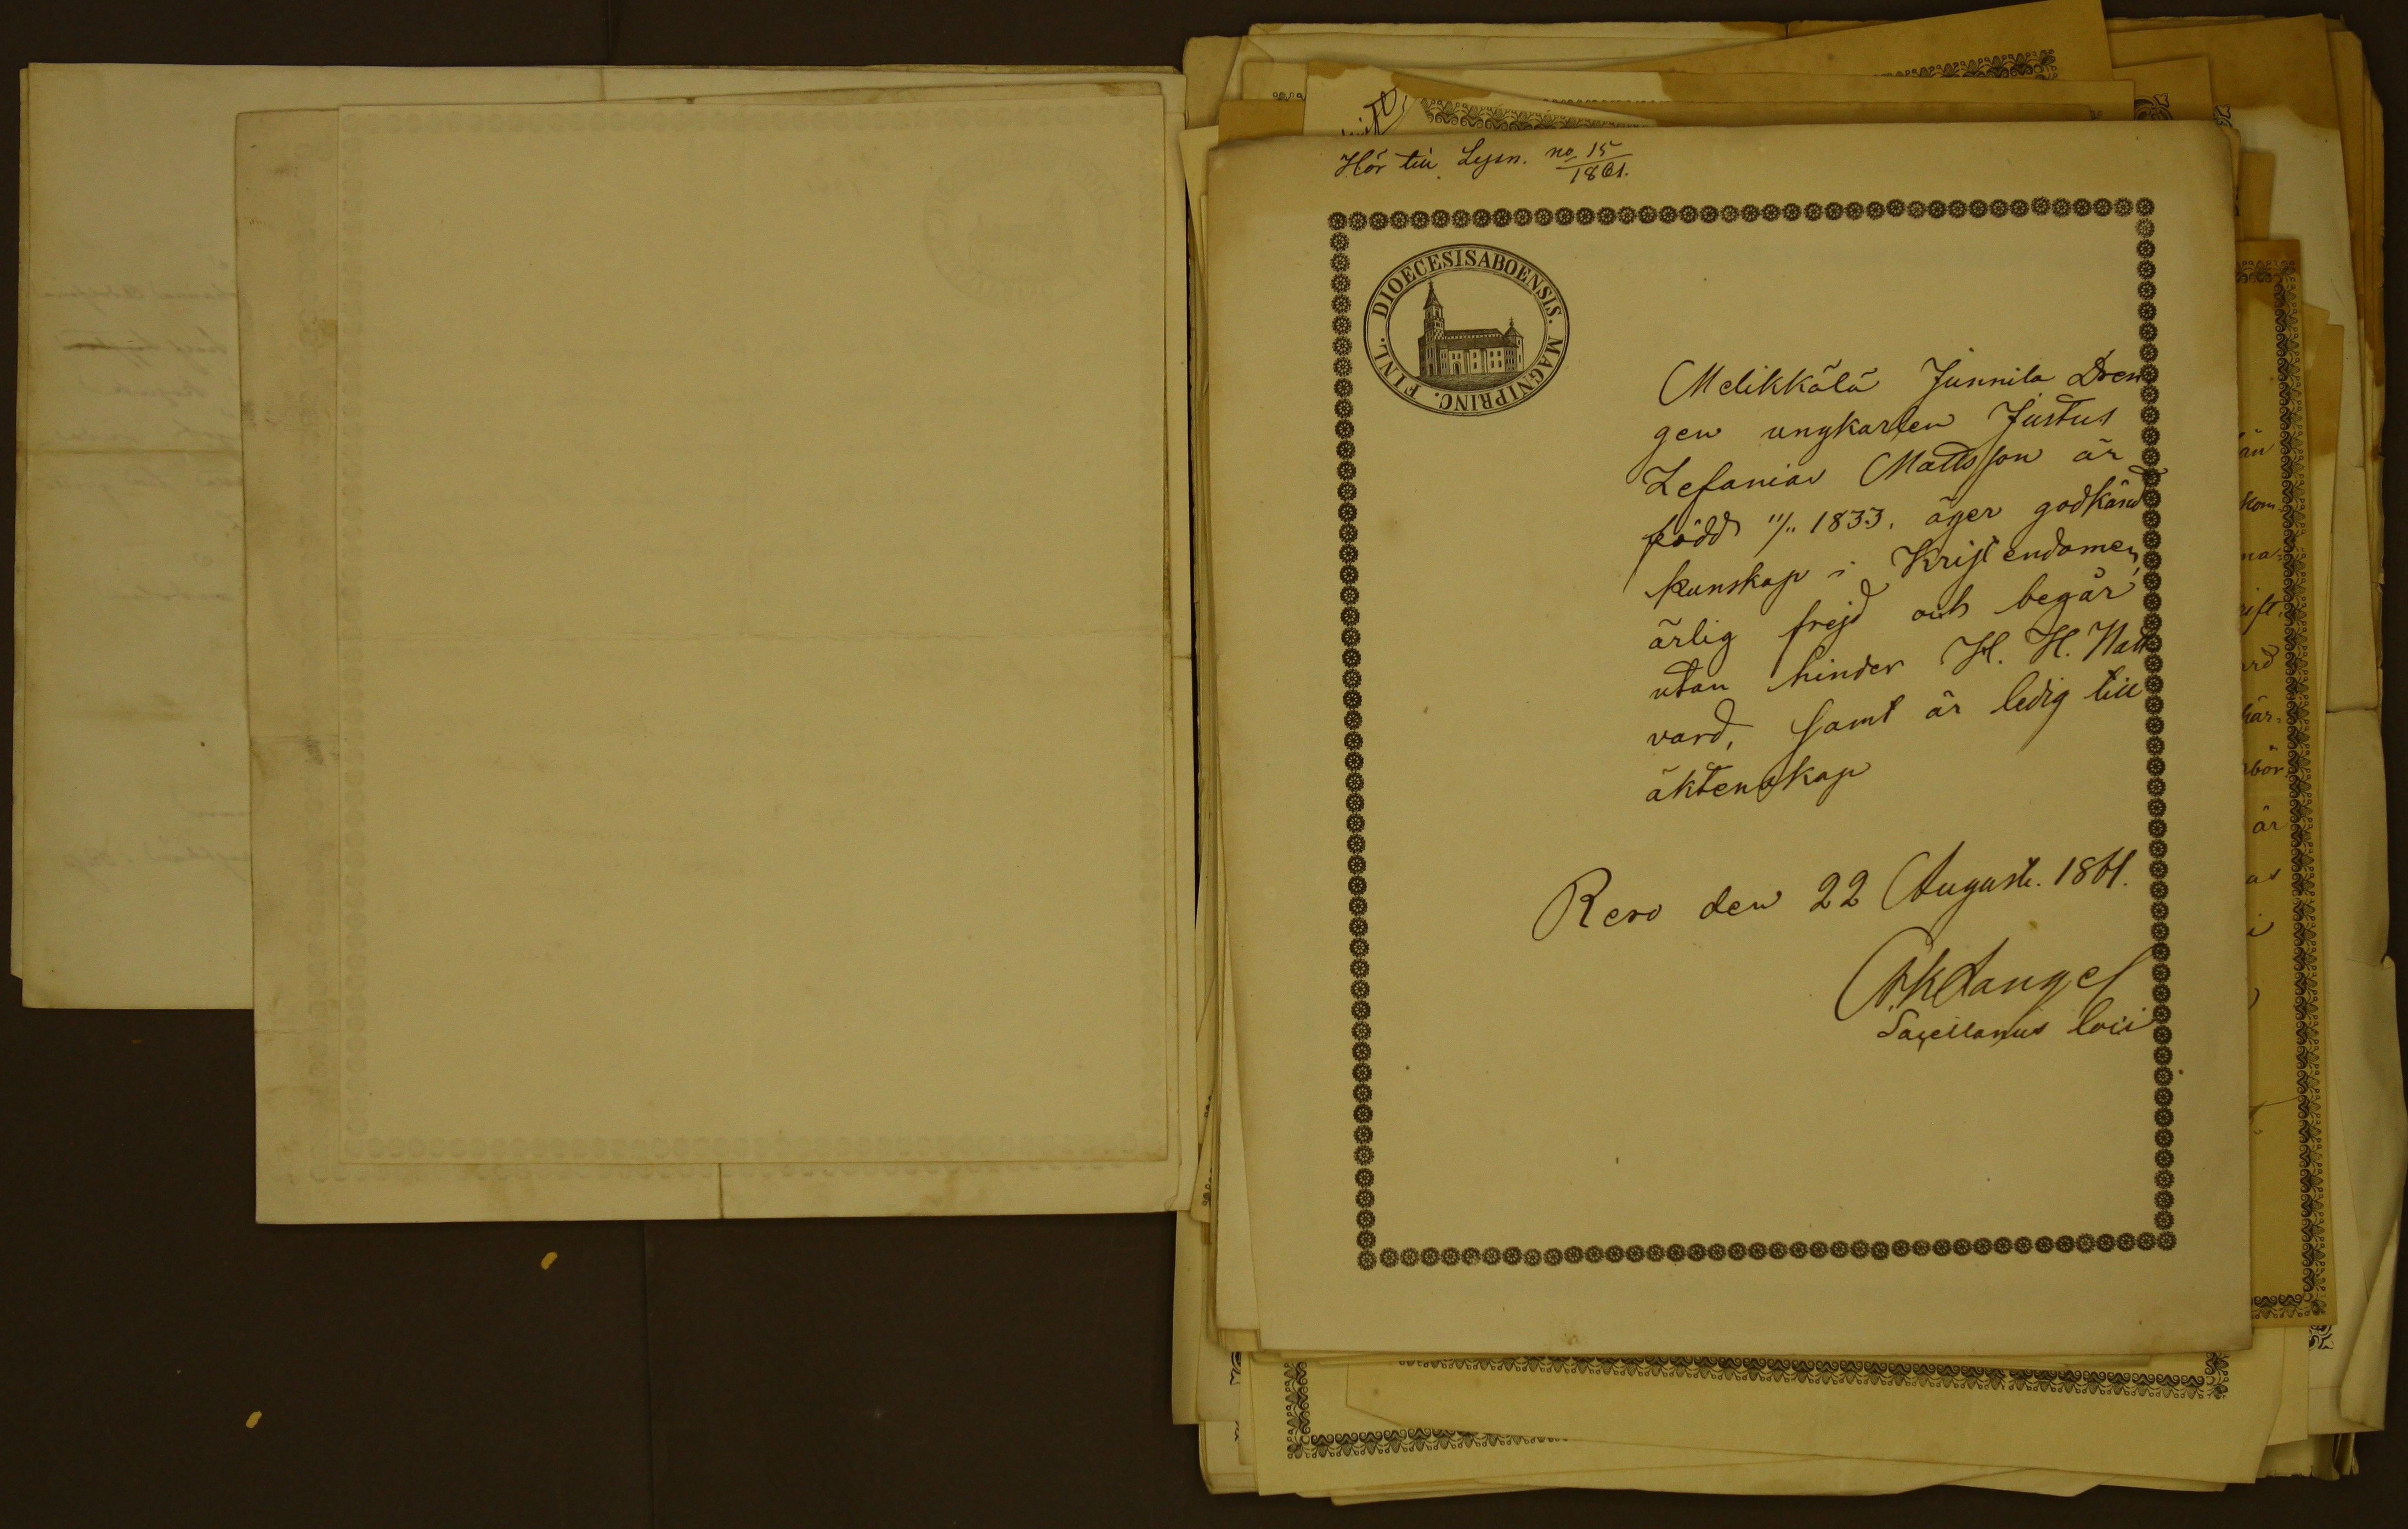 Hör till Lysn. no 15/1861.
DIOECESISABOENSIS. MAGNIPRINC. FINL.
Melikkälä Junnila Dren
gen ungkarlen Justus
Zefanias Mattsson är
född 11/11 1833. äger godkänd
kunskap i Kristendomen,
ärlig frejd och begår
utan hinder H. H. Natt
vard, samt är ledig till
äktenskap
Reso den 22 Augusti. 1861.
Sacellanus loci
än
kom
na=
rift
rd
här=
bör
är
as
i